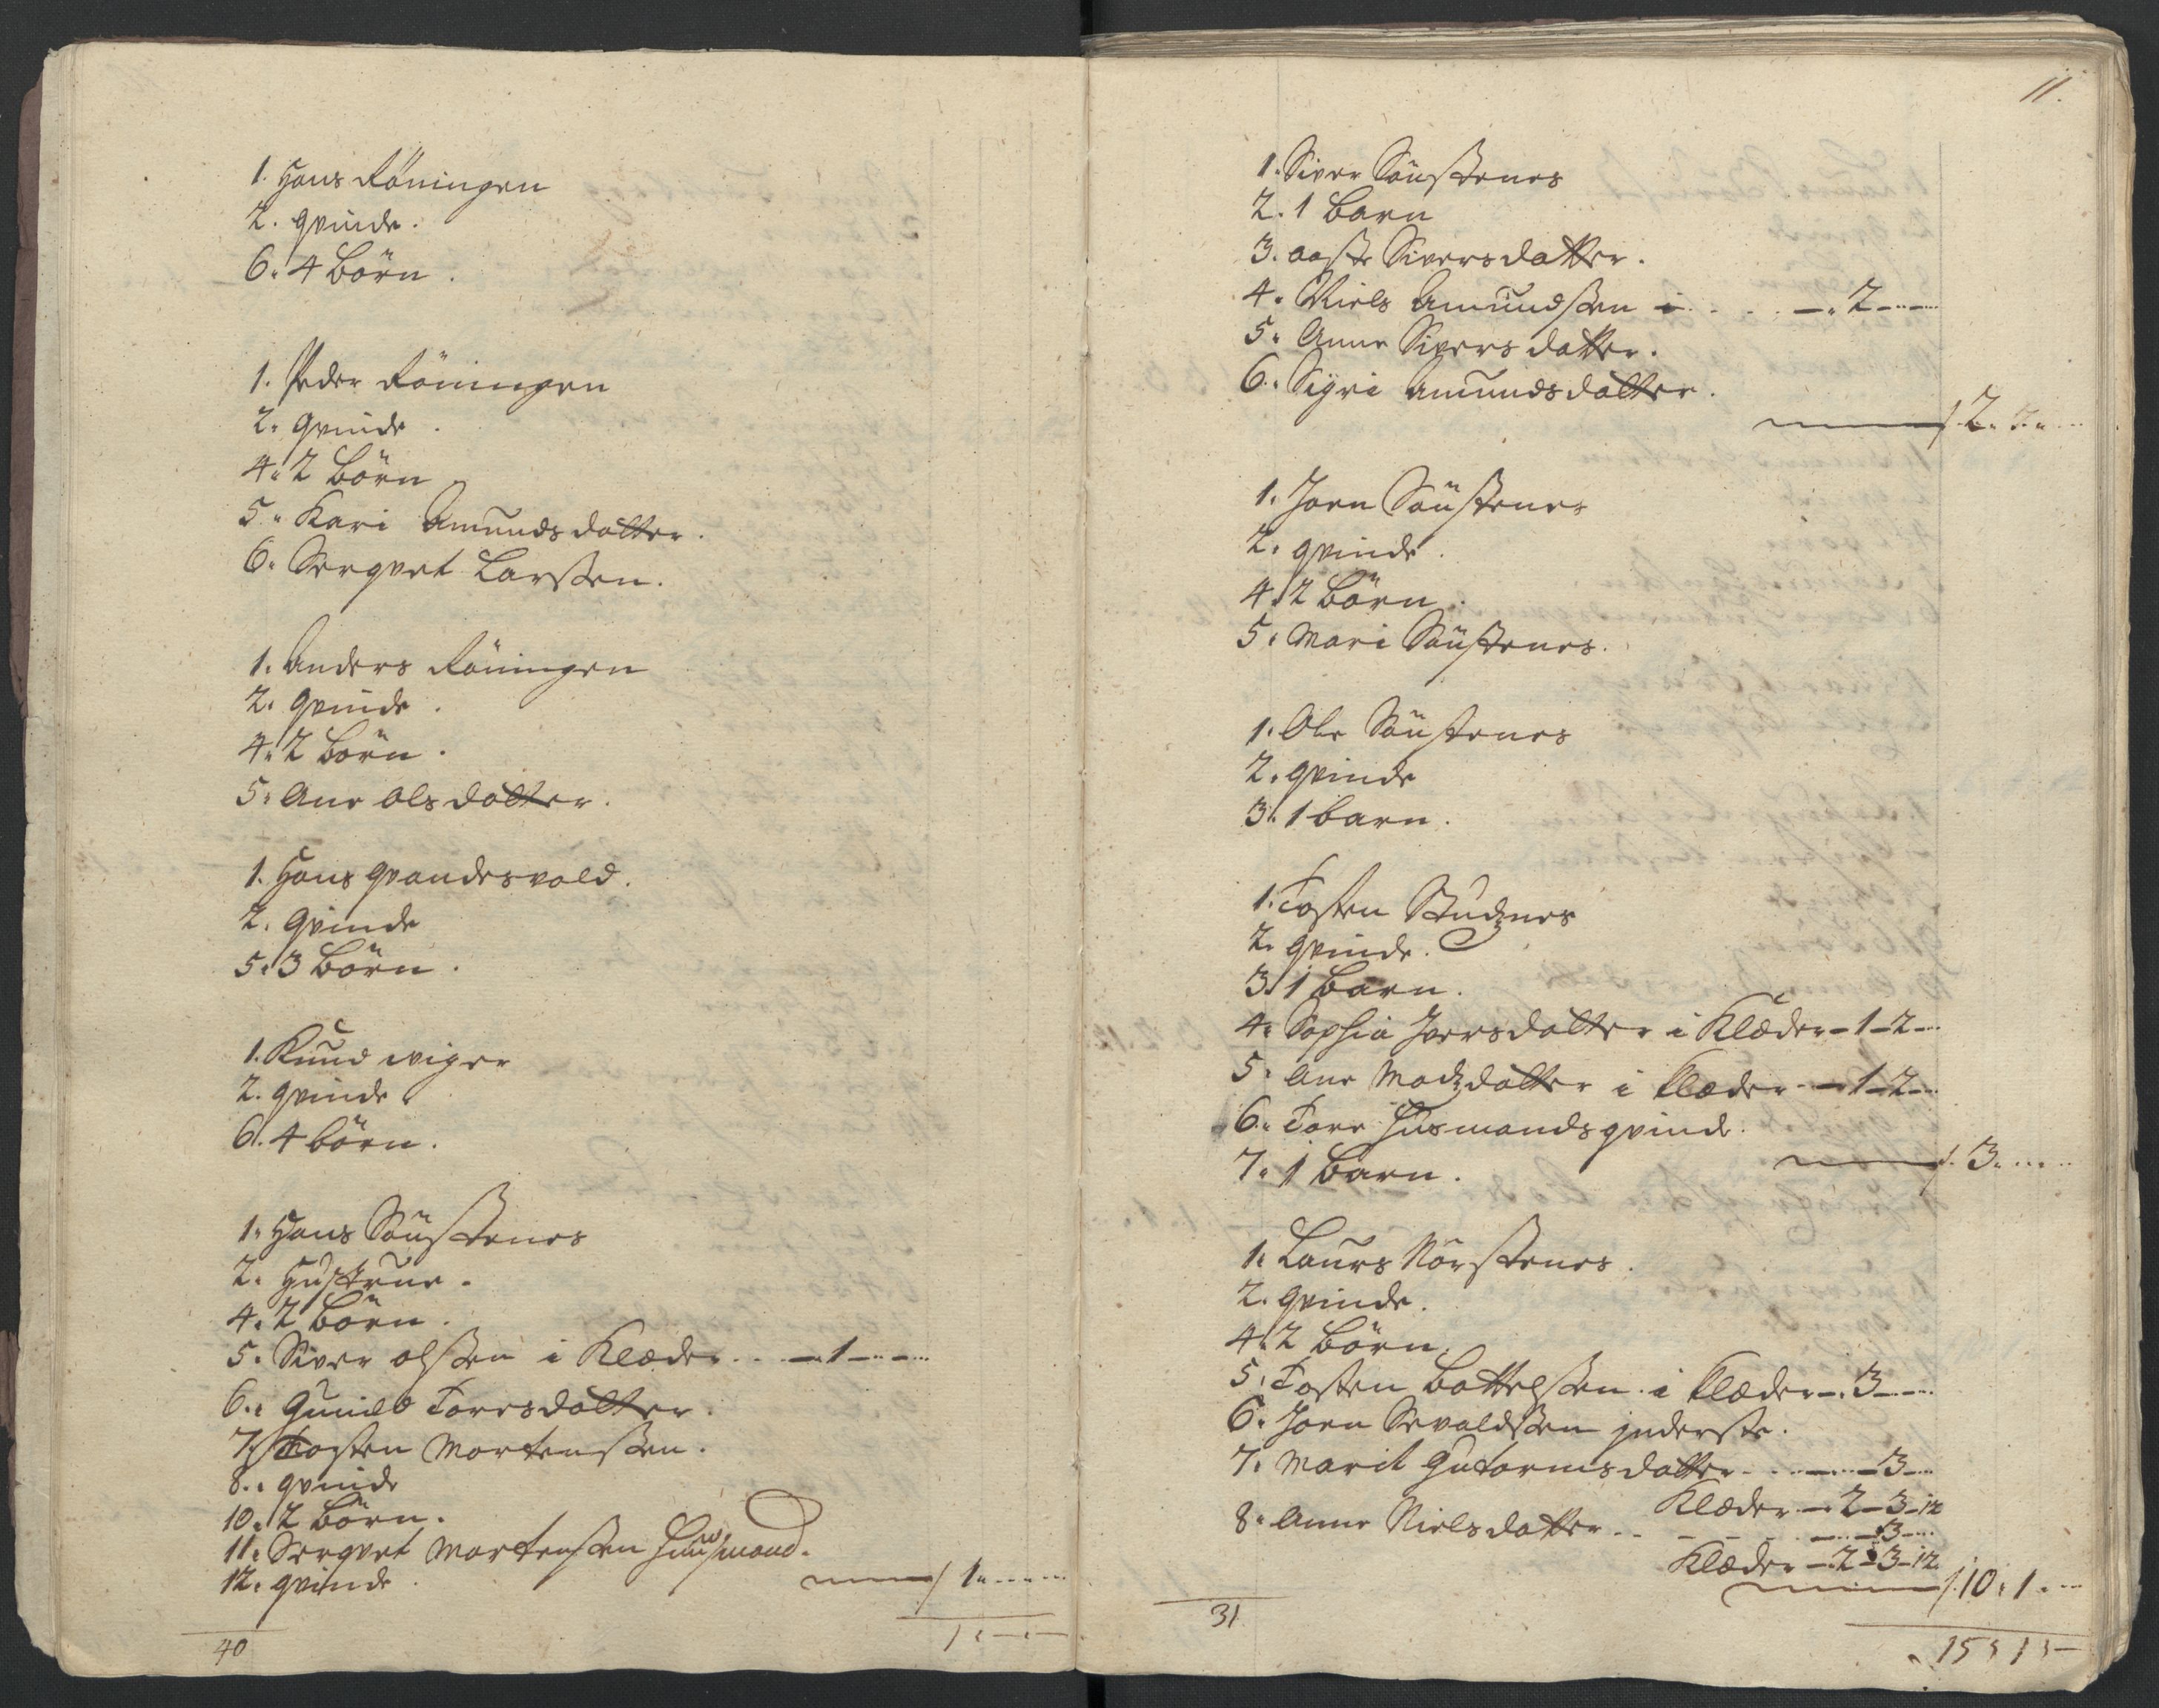 1. Hans Röningen
2. qvinde.
6. 4 börn.
1. Peder Röningen
2. qvinde.
4. 2 börn
5. Kari Amunds datter.
6. Serqvet Larssen.
1. Anders Röningen
2. qvinde.
4. 2 börn.
5. Ane Olsdatter.
1. Hans qvandesvold.
2. qvinde
5. 3 börn.
1. Knud wiger
2. qvinde
6. 4 börn.
1. Hans Söustenes
2. Hustrue.
4. 2 börn.
5. Siver olssen i Klæder - 1 -
6. Gunild Toresdatter.
7. Tosten Mortenssen.
8. qvinde
10. 2 börn.
11. Serqvet Mortenssen Huusmand.
12. qvinde. / 1 -
40
1 - -
11.
1. Siver Söustenes
2. 1 barn
3. Aaste Siversdatter.
4. Niels Amundssen i - 2 -
5. Anne Sivers datter.
6. Sigri Amundsdatter.
/ 2. 2.
1. Joen Söustenes
2. qvinde.
4. 2 börn.
5. Mari Söustenes.
1. Ole Söustenes
2. qvinde
3. 1 barn.
1. Tosten Studznes
2. qvinde.
3. 1 barn.
4. Sophia Jversdatter i Klæder - 1 - 2 -
5. Ane Madzdatter i Klæder - 1 - 2 -
6. Tore Husmands qvinde.
7. 1 barn. / 3.
1. Laurs Nörstenes.
2. qvinde.
4. 2 börn.
5. Tosten Bottelssen i Klæder - 3 -
6. Joen Sevaldssen jnderste.
7. Marit Gutormsdatter - 3 -
Klæder - 2 - 3 - 12
8. Anne Nielsdatter - 3 -
Klæder - 2 - 3 - 12
/ 10. 1.
31
15 1 -